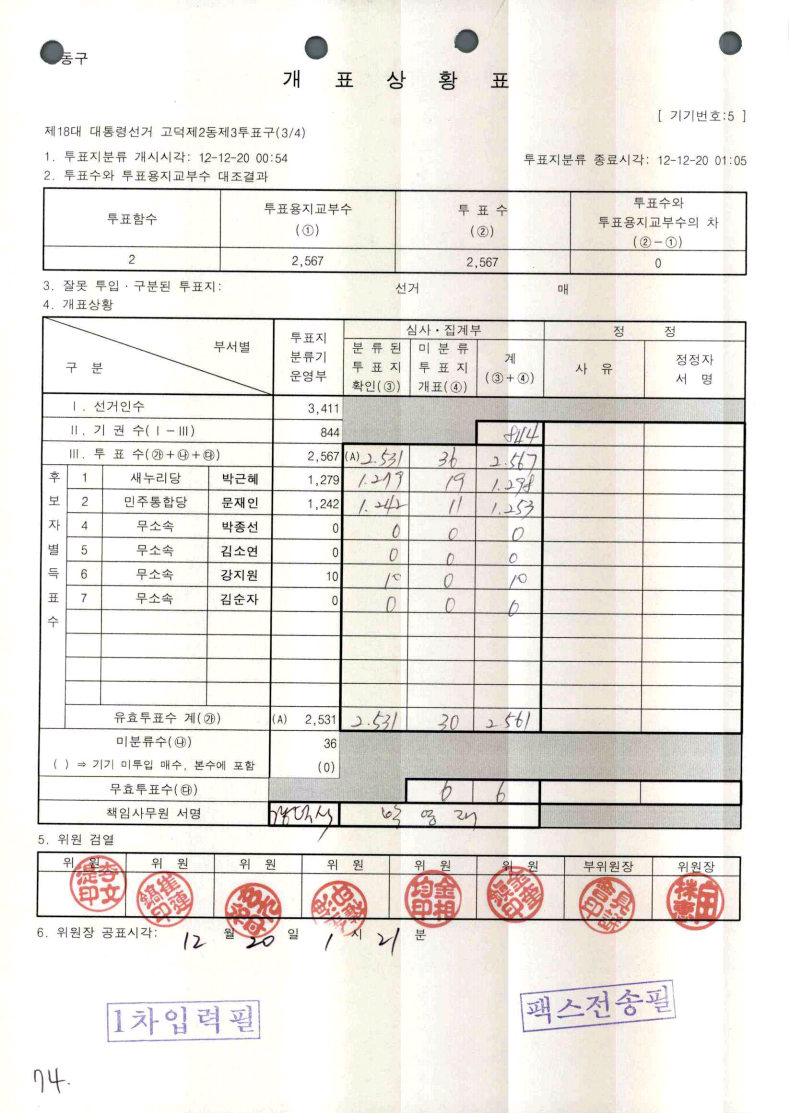 동구
개 표 상 황 표
[ 기기번호:5 ]
제18대 대통령선거 고덕제2동제3투표구(3/4)
1. 투표지분류 개시시각: 12-12-20 00:54 투표지분류 종료시각: 12-12-20 01:05
2. 투표수와 투표용지교부수 대조결과
투표함수 투표용지교부수 (①) 투 표 수 (②) 투표수와 투표용지교부수의 차 (②-①)
2 2,567 2,567 0
3. 잘못 투입·구분된 투표지: 선거 매
4. 개표상황
구 분 부서별 투표지 분류기 운영부 심사·집계부 정 정
분 류 된 투 표 지 확인(③) 미 분 류 투 표 지 개표(④) 계 (③+④) 사 유 정정자 서 명
Ⅰ. 선거인수 3,411
Ⅱ. 기 권 수(Ⅰ-Ⅲ) 844 844
Ⅲ. 투 표 수(㉮+㉯+㉰) 2,567 (A) 2.531 36 2.567
후보자별득표수
1 새누리당 박근혜 1,279 1.279 19 1.298
2 민주통합당 문재인 1,242 1.242 11 1.253
4 무소속 박종선 0 0 0 0
5 무소속 김소연 0 0 0 0
6 무소속 강지원 10 10 0 10
7 무소속 김순자 0 0 0 0
유효투표수 계(㉮) (A) 2,531 2.531 30 2.561
미분류수(㉯) 36
( ) ⇒ 기기 미투입 매수, 본수에 포함 (0)
무효투표수(㉰) 6 6
책임사무원 서명
5. 위원 검열
위 원 위 원 위 원 위 원 위 원 위 원 부위원장 위원장
6. 위원장 공표시각: 12 월 20 일 1 시 21 분
1차입력필
팩스전송필
74.